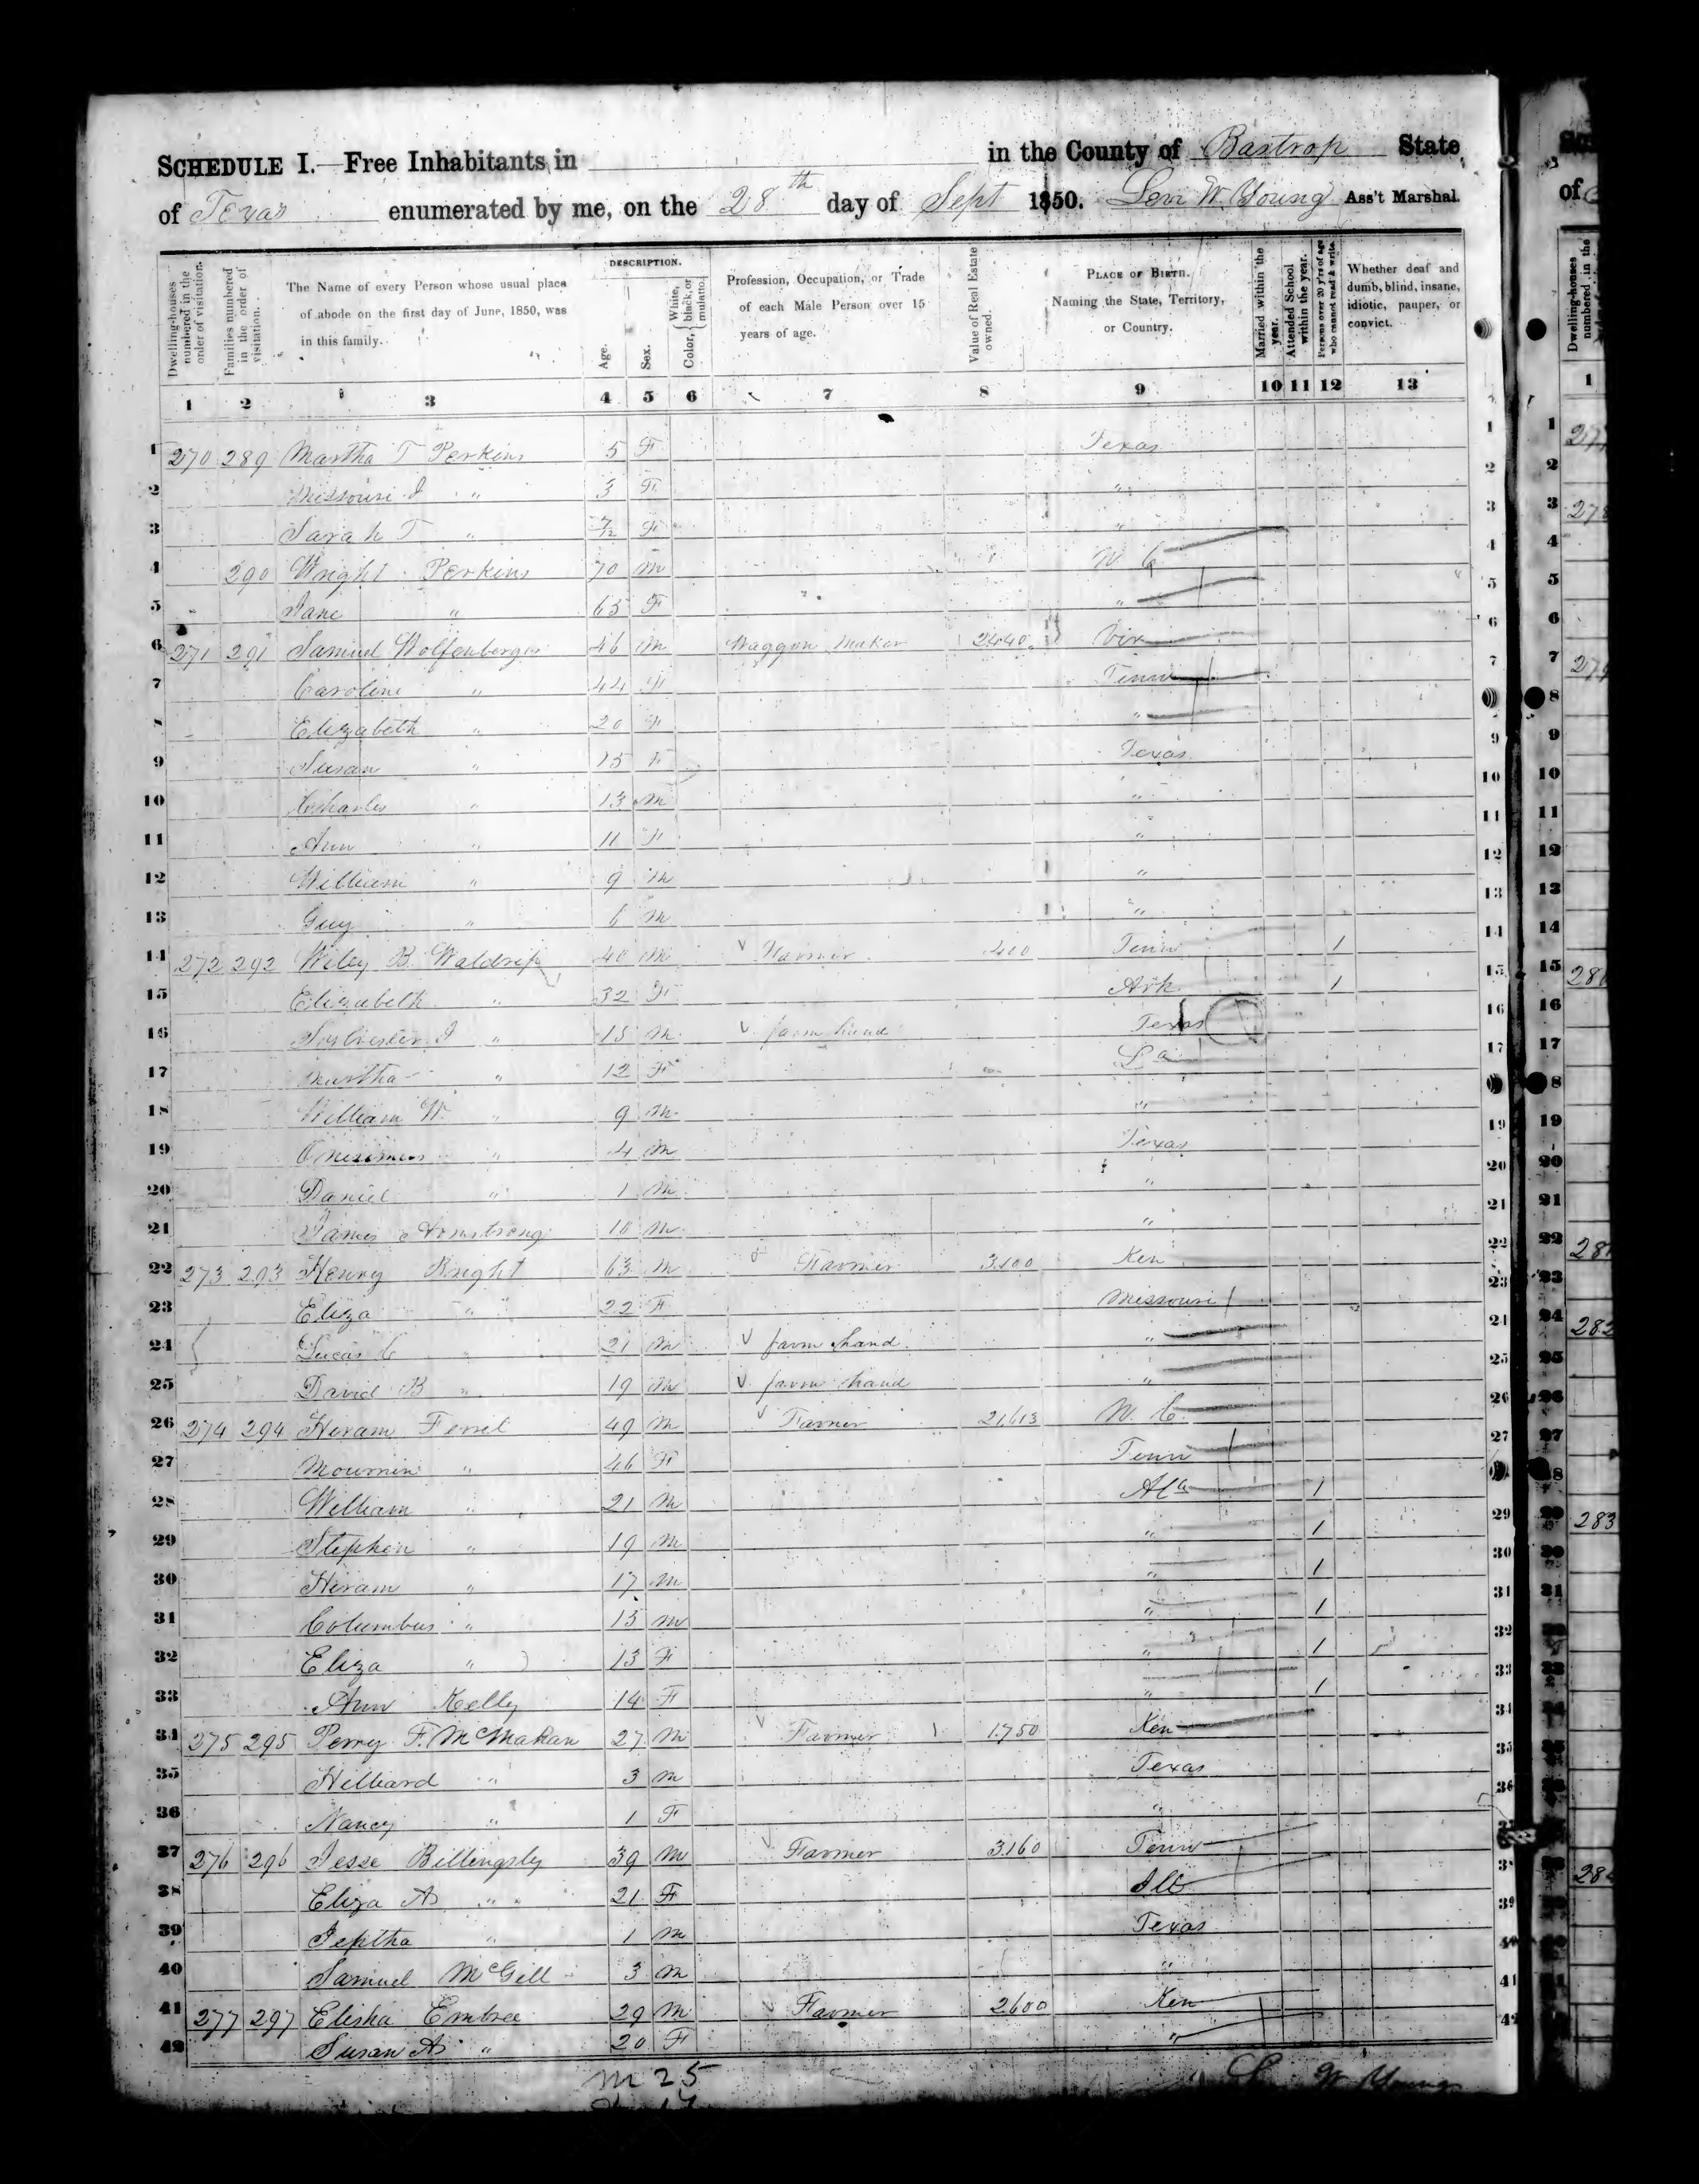 SCHEDULE I.—Free Inhabitants in in the County of Bastrop State
of Texas enumerated by me, on the 28th day of Sept 1850. Levi W. Young Ass't Marshal.
Dwelling-houses numbered in the order of visitation.
Families numbered in the order of visitation.
The Name of every Person whose usual place of abode on the first day of June, 1850, was in this family.
DESCRIPTION.
Age.
Sex.
Color, { White, black, or mulatto.
Profession, Occupation, or Trade of each Male Person over 15 years of age.
Value of Real Estate owned.
PLACE OF BIRTH. Naming the State, Territory, or Country.
Married within the year.
Attended School within the year.
Persons over 20 y'rs of age who cannot read & write.
Whether deaf and dumb, blind, insane, idiotic, pauper, or convict.
1 2 3 4 5 6 7 8 9 10 11 12 13
1 270 289 Martha T Perkins 5 F Texas 1
2 Missouri J " 3 F " 2
3 Sarah T " 7/12 F " 3
4 290 Wright Perkins 70 M N. C 4
5 Jane " 65 F " 5
6 271 291 Samuel Wolfenberger 46 M Waggon Maker 2440 Vir 6
7 Caroline " 44 F Tenn 7
8 Elizabeth " 20 F " 8
9 Susan " 15 F Texas 9
10 Charles " 13 M " 10
11 Ann " 11 F " 11
12 William " 9 M " 12
13 Guy " 6 M " 13
14 272 292 Wiley B. Waldrip 40 M Farmer 400 Tenn 1 14
15 Elizabeth " 32 F Ark 1 15
16 Sylvester J " 15 M farm hand Texas 16
17 Martha " 12 F La 17
18 William W. " 9 M "
19 Onesimus " 4 M Texas 19
20 Daniel " 1 M " 20
21 James Armstrong 10 M " 21
22 273 293 Henry Knight 63 M Farmer 3100 Ken 22
23 Eliza " 22 F Missouri 23
24 Lucas C " 21 M farm hand " 24
25 David B " 19 M farm hand " 25
26 274 294 Hiram Ferril 49 M Farmer 21613 N. C. 26
27 Mournin " 46 F Tenn 27
28 William " 21 M Ala 1
29 Stephen " 19 M " 1 29
30 Hiram " 17 M " 1 30
31 Columbus " 15 M " 1 31
32 Eliza " 13 F " 1 32
33 Ann Kelly 14 F " 1 33
34 275 295 Perry F. McMahan 27 M Farmer 1750 Ken 34
35 Hilliard " 3 M Texas 35
36 Nancy " 1 F " 36
37 276 296 Jesse Billingsly 39 M Farmer 3160 Tenn 37
38 Eliza A " 21 F Ill 38
39 Jeptha " 1 M Texas 39
40 Samuel McGill 3 M " 40
41 277 297 Elisha Embree 29 M Farmer 2600 Ken 41
42 Susan A " 20 F " 42
M 25
W Young